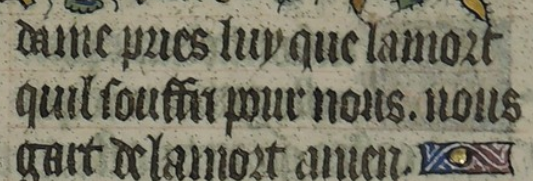 dame pries luy que lamort
quil souffri pour nous. nous
gart delamort amen.